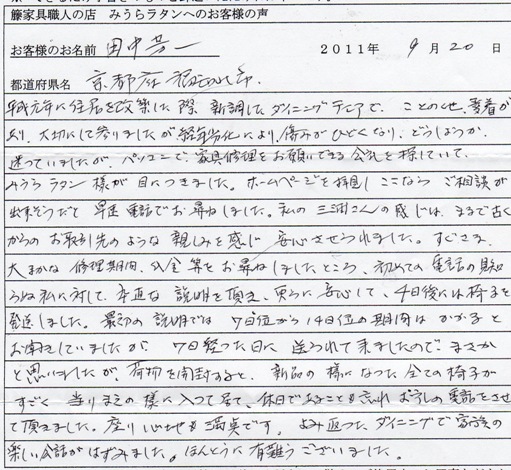 籐家具職人の店 みうらラタンへのお客様の声
お客様のお名前 田中
2011年 9月20日
都道府県名 京都府福知山市
平成元年に住居を改築した際、新調したダイニングチェアで、ことのほか愛着が
あり、大切にして参りましたが経年劣化により、傷みがひどくなり、どうしようか、
迷っていましたが、パソコンで家具修理をお願いできる会社を探していて、
みうらラタン様が目につきました。ホームページを拝見しここなら ご相談が
出来そうだと 早速電話でお尋ねしました。私の 三浦さんの感じは、まるで古く
からのお取引先のような 親しみを感じ 安心させられました。すぐさま、
大まかな 修理期間、料金等をお尋ねしましたところ、初めての電話の見知
らぬ私に対して、本当な説明を頂き、更に安心して、4日後には椅子を
発送しました。最初の説明では 7日位から14日位の期間はかかると
お聞きしていましたが 7日経った日に 送られて来ましたので、まさか
と思いましたが、荷物を開封すると、新品の様になった全ての椅子が
すごく 当りまえの様に入って居て、休日であることも忘れ お礼の電話をさせ
て頂きました。座り心地も満点です。よみ返ったダイニングで家族の
楽しい会話がはずみました。ほんとうに有難うございました。